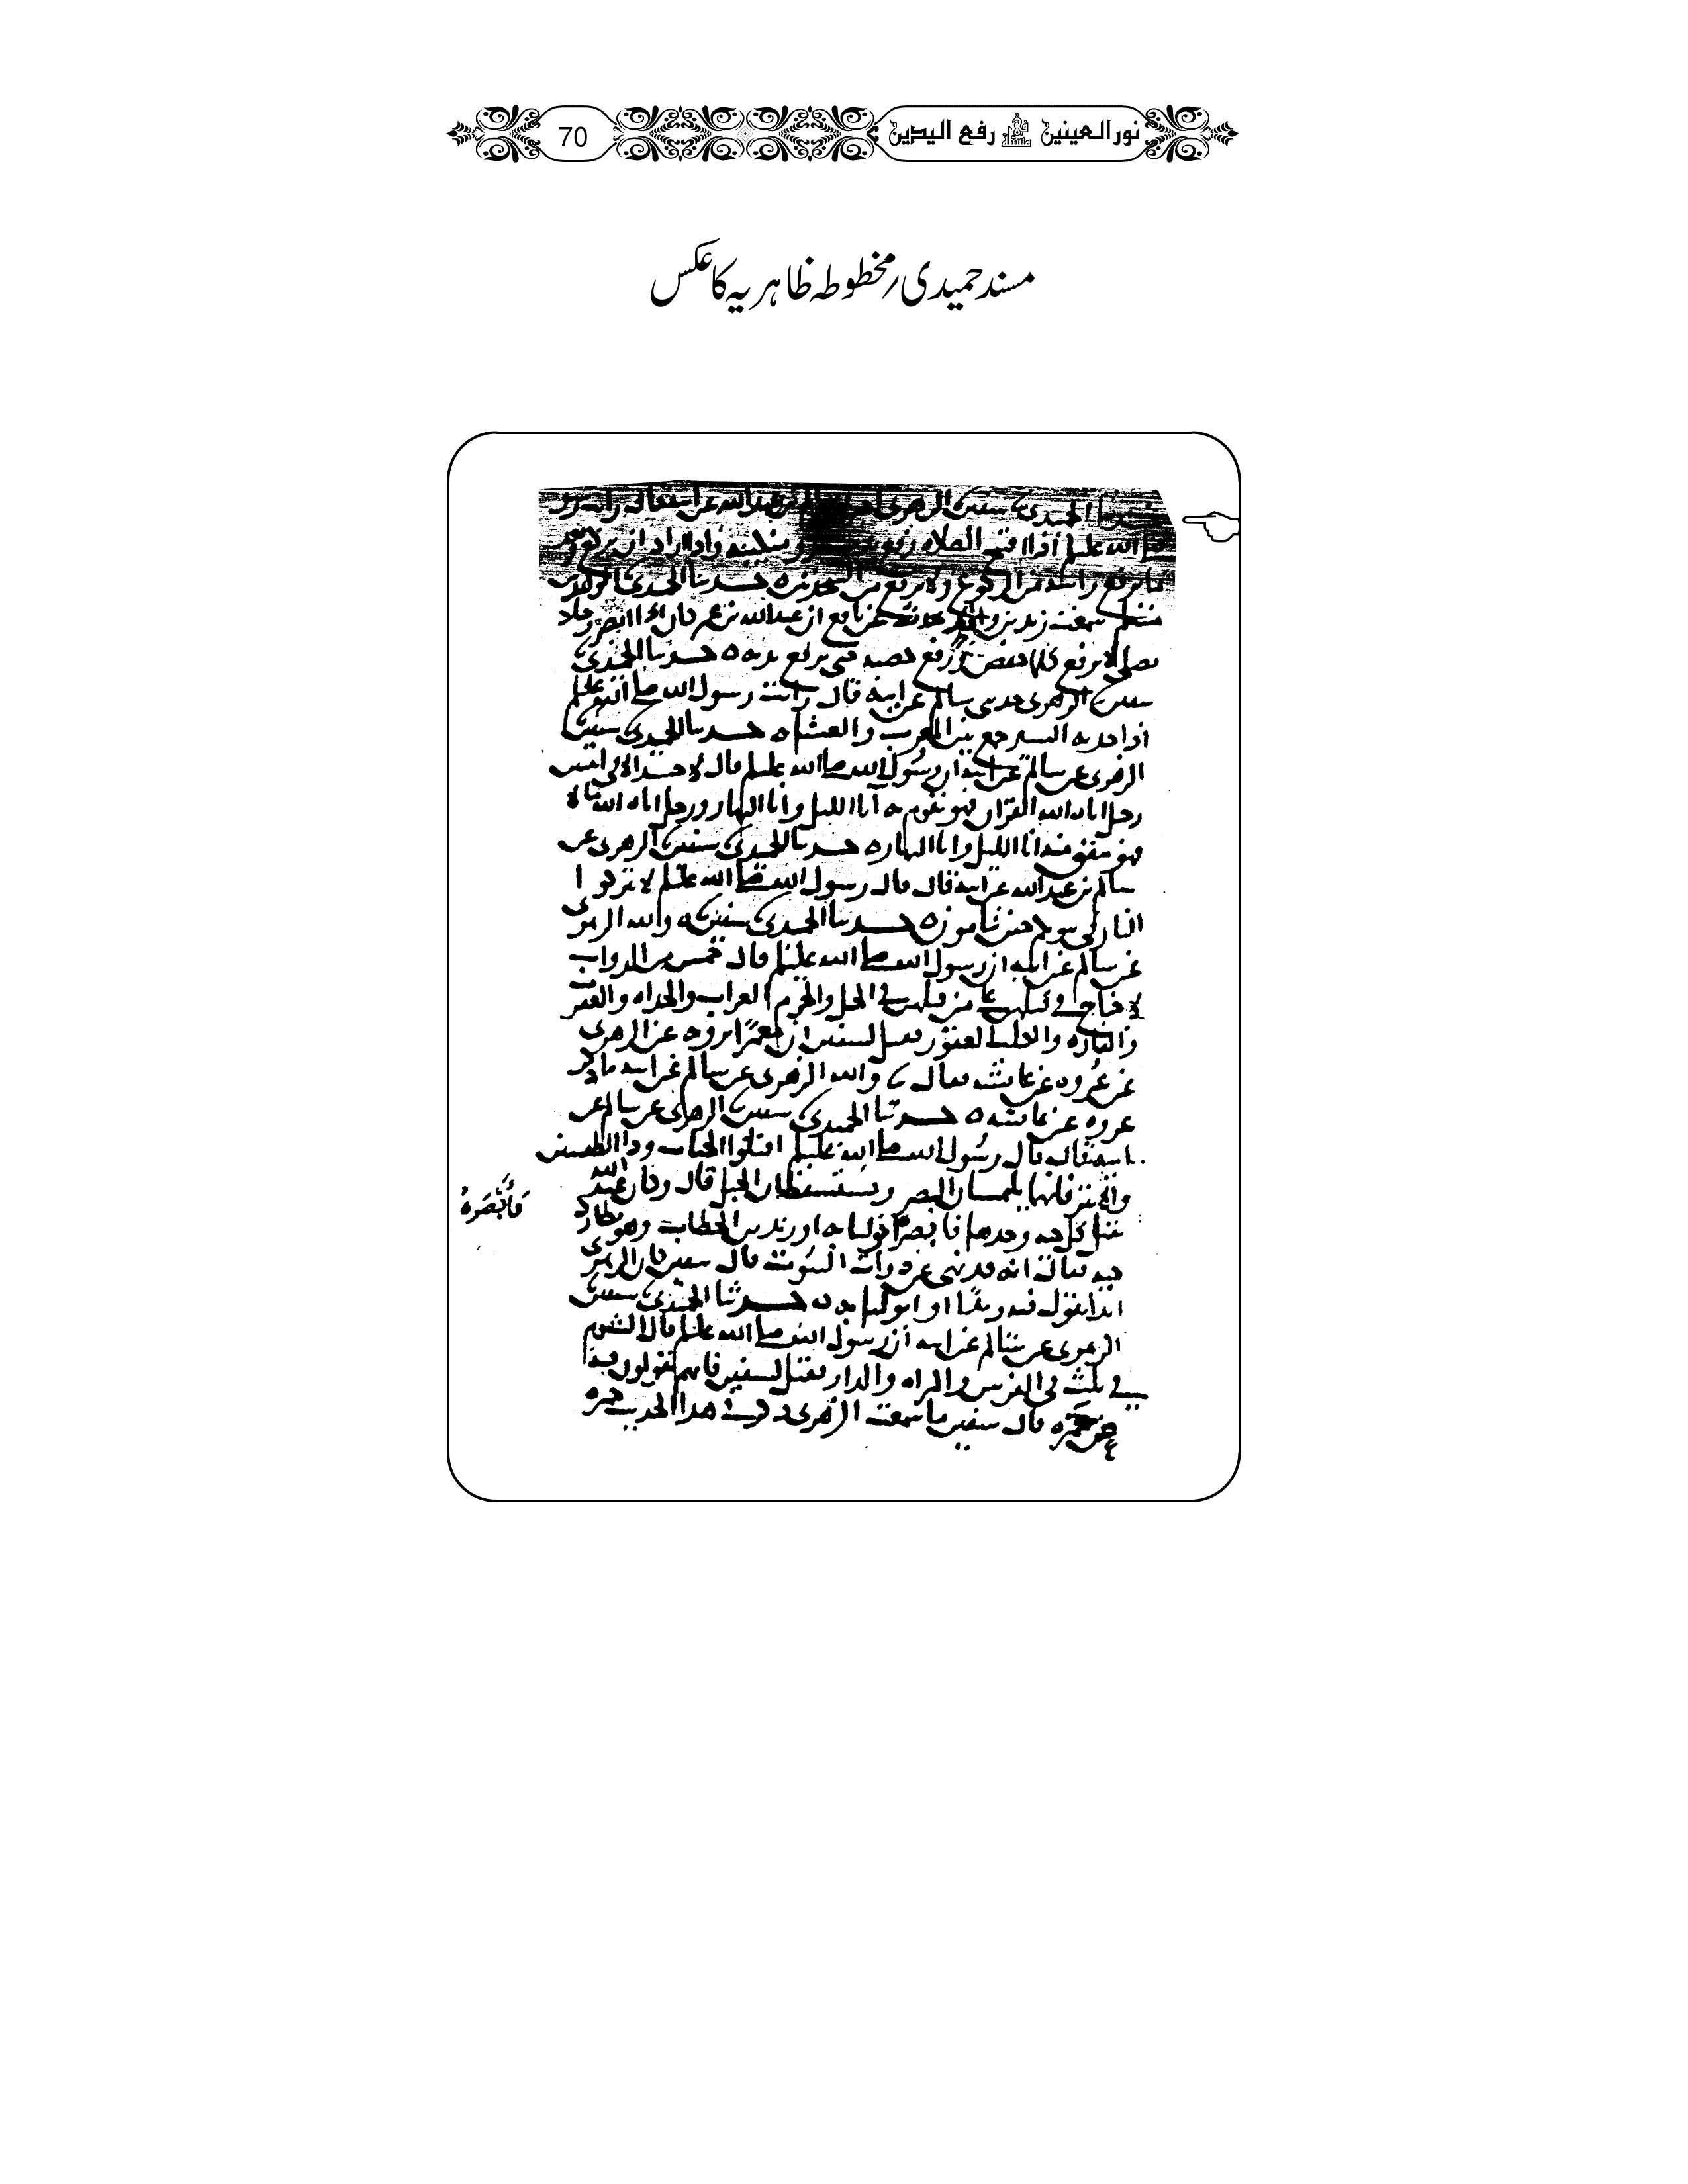 نور العینین فی مسئلۃ رفع الیدین
70
مسند حمیدی/مخطوطہ ظاہریہ کا عکس
الحميدي سفين الزهري
الله عليه اذا افتح الصلاه واذا اراد ان يركع
راسه من الركوع ولا يرفع من السجدتين حدثنا الحميدي
سمعت زيد بن واقد يحدث عن نافع ان عبد الله بن عمر كان اذا ابصر رجلا
يصلي لا يرفع كلما خفض ورفع حصبه حتى يرفع يديه حدثنا الحميدي
سفين الزهري حدثني سالم عن ابيه قال رايت رسول الله صلى الله عليه
اذا جد به السير جمع بين المغرب والعشاء حدثنا الحميدي سفين
الزهري عن سالم عن ابيه ان رسول الله صلى الله عليه قال لا حسد الا في اثنين
رجل اتاه الله القران فهو يقوم به انا الليل وانا النهار ورجل اتاه الله مالا
فهو ينفق منه انا الليل وانا النهار حدثنا الحميدي سفين الزهري عن
سالم بن عبد الله عن ابيه قال قال رسول الله صلى الله عليه لا تتركوا
النار في بيوتكم حين تنامون حدثنا الحميدي سفين والله الزهري
عن سالم عن ابيه ان رسول الله صلى الله عليه قال خمس من الدواب
لا جناح في قتلهن على من قتلهن في الحل والحرم الغراب والحداه والعقرب
والفاره والكلب العقور فقيل لسفين ان معمرا يرويه عن الزهري
عن عروه عن عايشه فقال والله الزهري عن سالم عن ابيه ما ذكر
عروه عن عايشه حدثنا الحميدي سفين الزهري عن سالم عن
ابيه قال قال رسول الله صلى الله عليه اقتلوا الحيات وذا الطفيتين
والابتر فانهما يلتمسان البصر ويستسقطان الحبل قال وكان عبد الله
يقتل كل حيه وجدها فابصره ابو لبابه او زيد بن الخطاب وهو يطارد
فأبصره
حيه فقال انه قد نهى عن ذوات البيوت قال سفين كان الزهري
ابدا يقول فيه زيد او ابو لبابه حدثنا الحميدي سفين
الزهري عن سالم عن ابيه ان رسول الله صلى الله عليه قال الشوم
في ثلث في الفرس والمراه والدار فقيل لسفين فانهم يقولون فيه
عن حمزه قال سفين ما سمعت الزهري ذكر في هذا الحديث حمزه